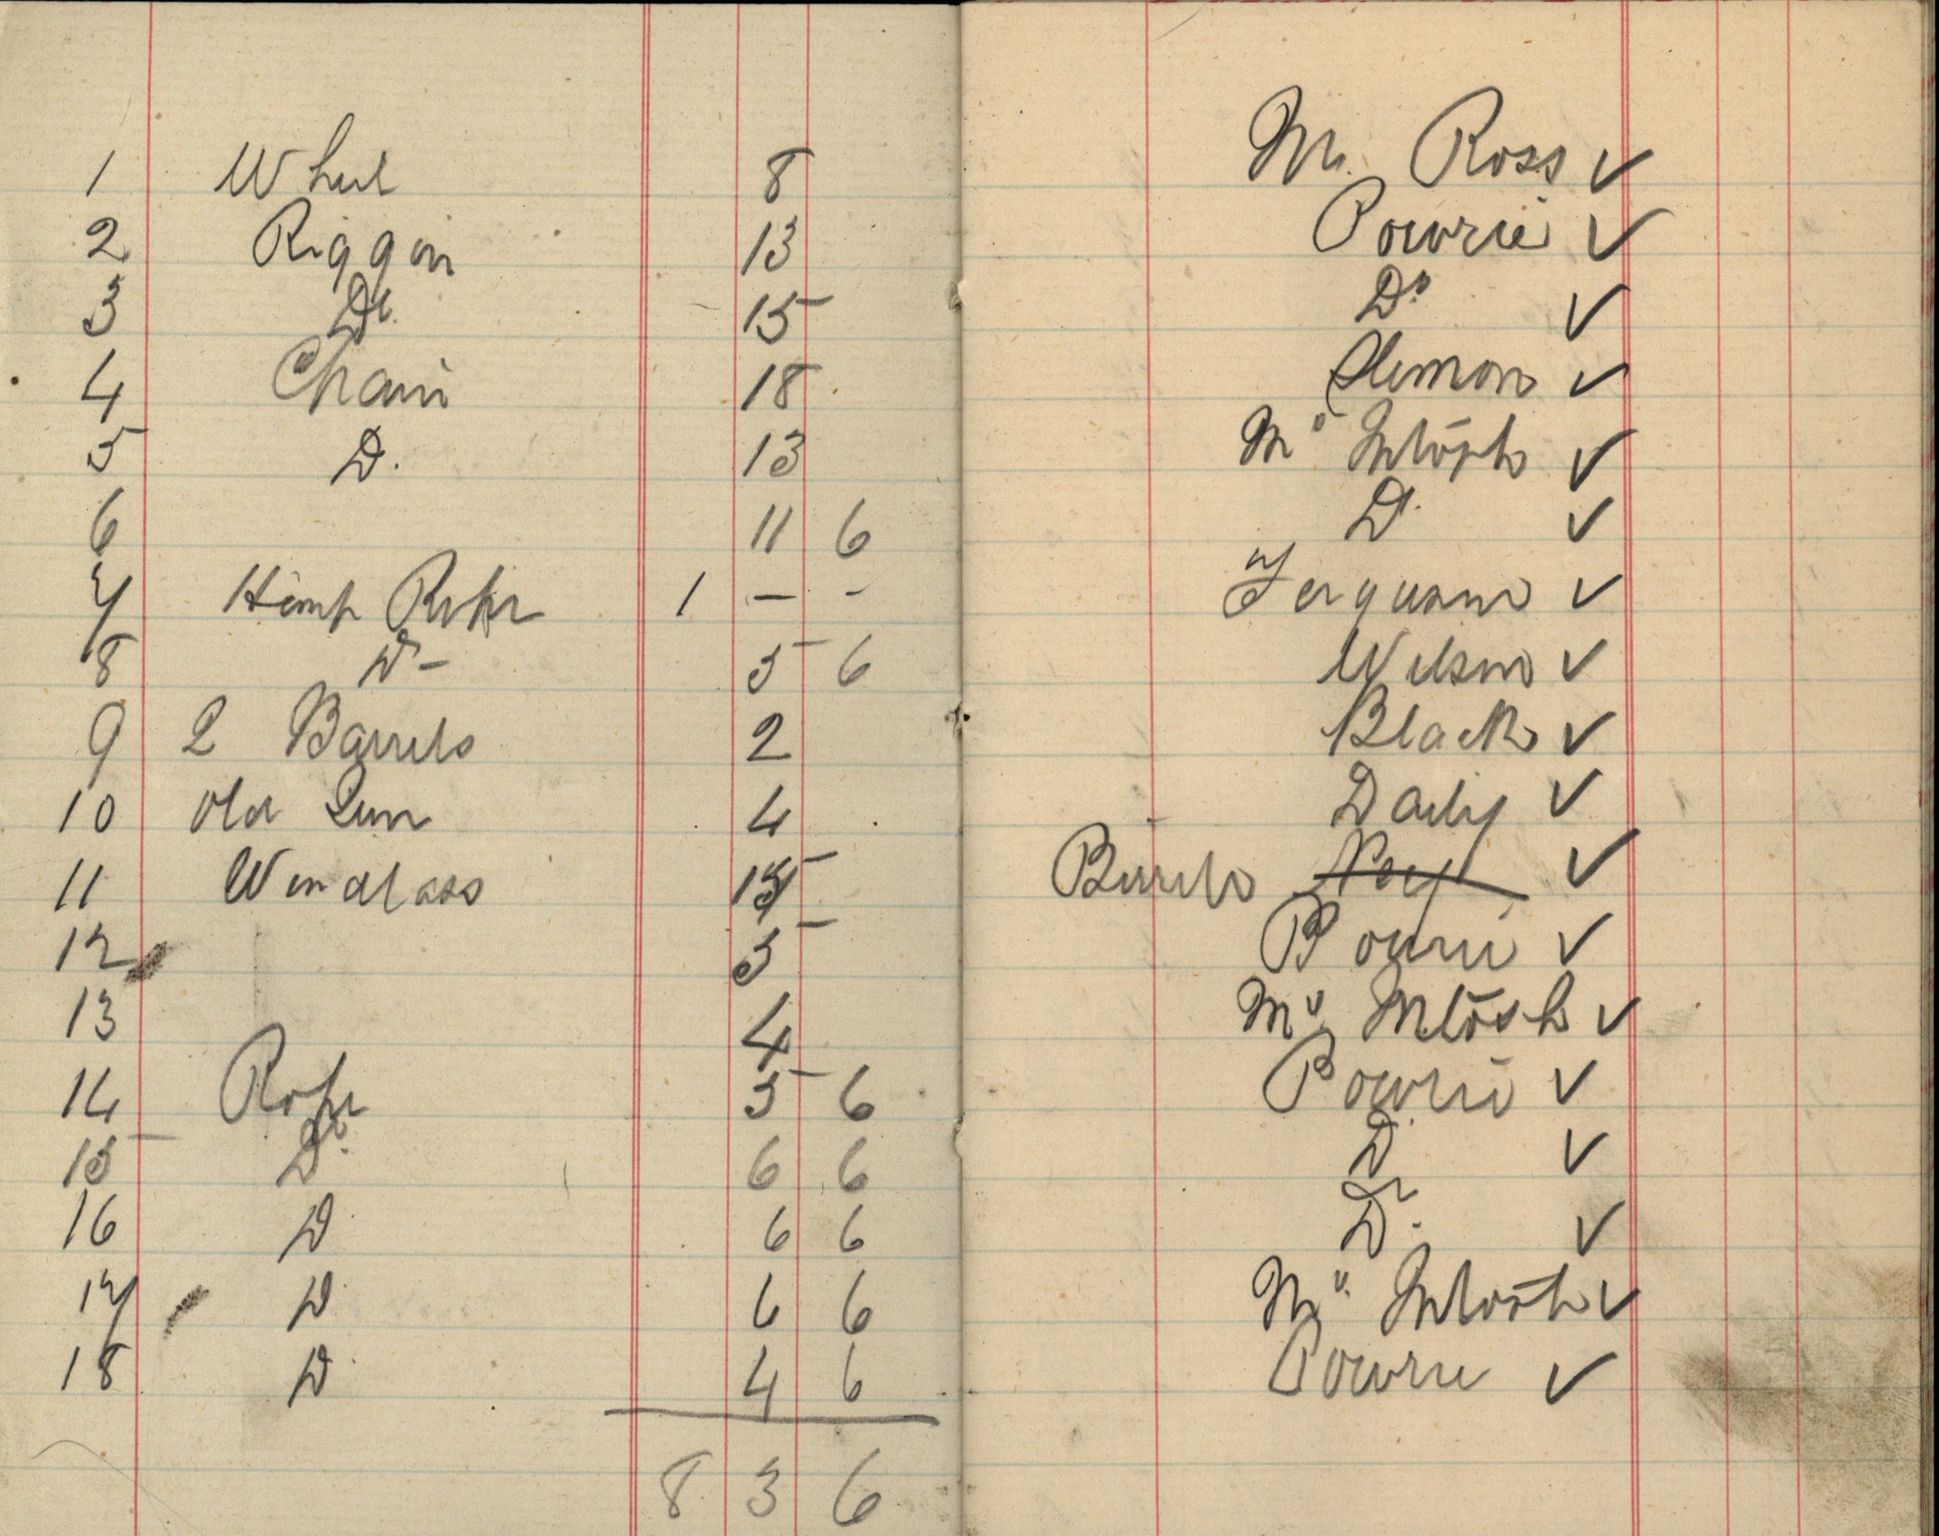 1 Wheel 8 Mr. Ross ✓
2 Riggin 13 Powrie ✓
3 Do. 15 Do ✓
4 Chain 18 Slemon ✓
5 D. 13 Mc Intosh ✓
6 11 6 D. ✓
7 Hemp Rope 1 – - Ferguson ✓
8 D- 5 6 Wilson ✓
9 2 Barrels 2 Black ✓
10 Old Gun 4 Daily ✓
11 Windlass 15 Birrels ✓
12 5 Powrie ✓
13 4 Mc Intosh ✓
14 Rope 5 6 Powrie ✓
15 Do. 6 6 D. ✓
16 D. 6 6 D. ✓
17 D. 6 6 Mc Intosh ✓
18 D. 4 6 Powrie ✓
8 3 6